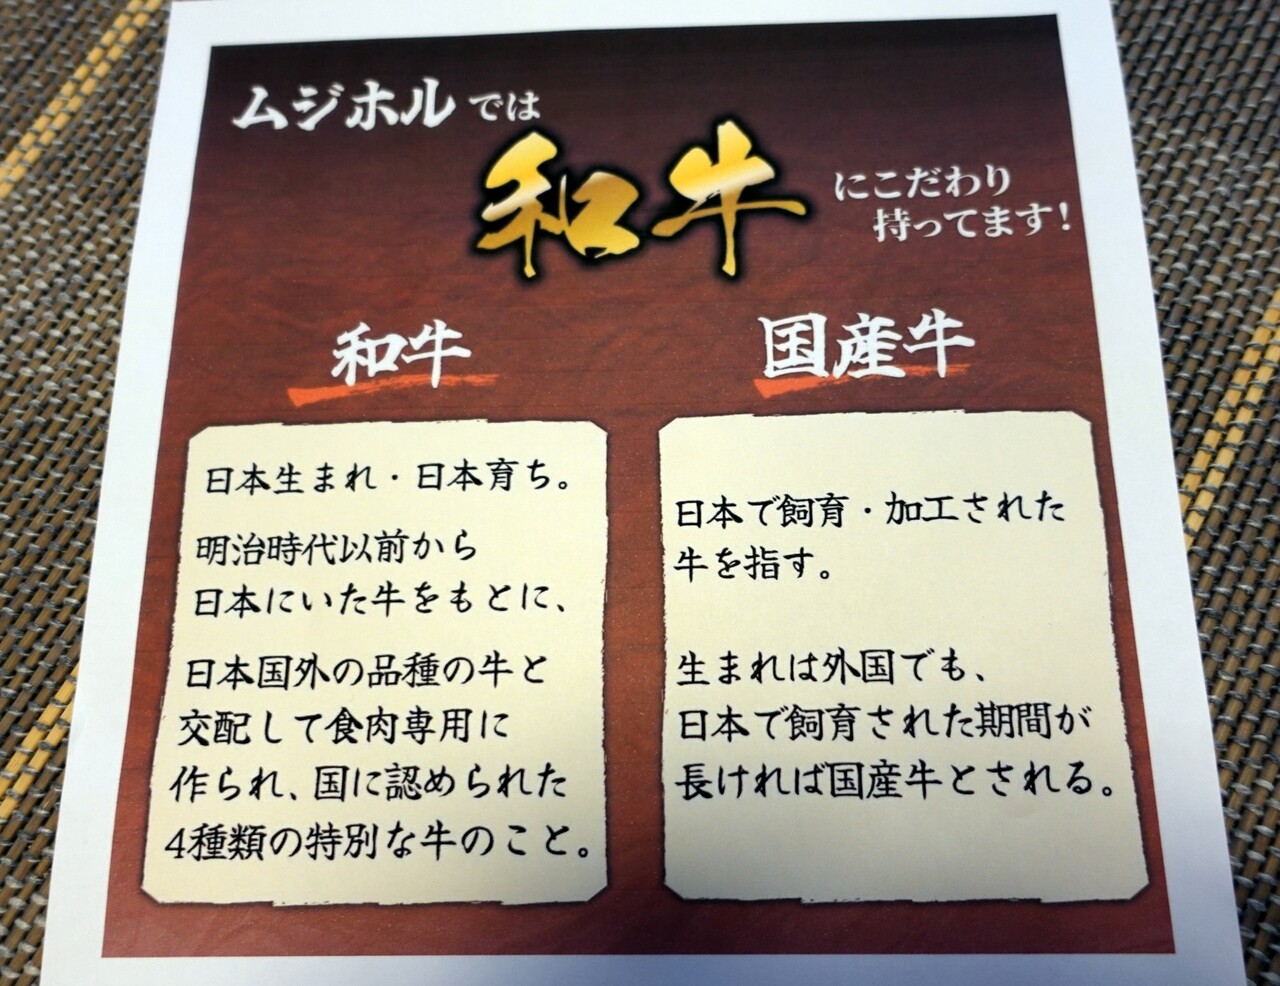 ムジホルでは
和牛
にこだわり
持ってます!
和牛
日本生まれ・日本育ち。
明治時代以前から
日本にいた牛をもとに、
日本国外の品種の牛と
交配して食肉専用に
作られ、国に認められた
4種類の特別な牛のこと。
国産牛
日本で飼育・加工された
牛を指す。
生まれは外国でも、
日本で飼育された期間が
長ければ国産牛とされる。